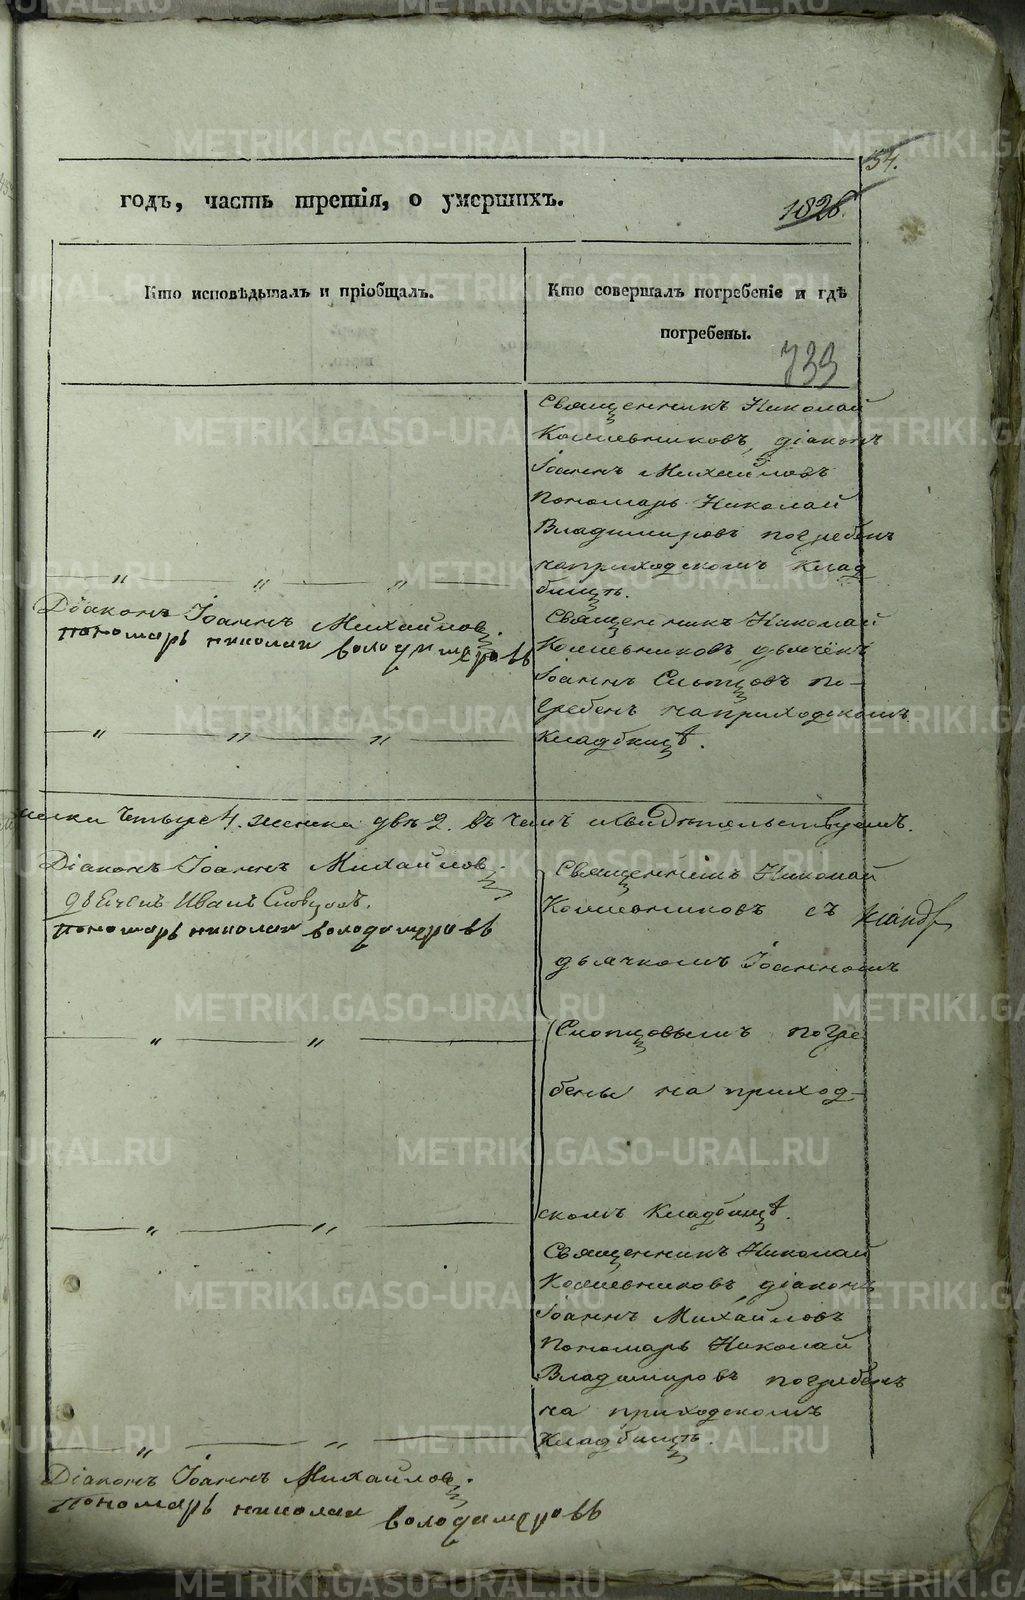 54.
годъ, часть третія, о умершихъ.
1826.
Кто исповѣдывалъ и пріобщалъ.
Кто совершалъ погребеніе и гдѣ
погребены.
733
Священникъ Николай
Кожевниковъ, діаконъ
Іоаннъ Михайловъ
Пономарь Николай
Владимировъ погребенъ
наприходскомъ Клад
бищѣ.
Діаконъ Іоаннъ Михайловъ.
пономарь николаи володимеровъ
Священникъ Николай
Кожевниковъ, дьячекъ
Іоаннъ Словцовъ по-
гребенъ наприходскомъ
Кладбищѣ.
четыре 4. женска двѣ 2. въ чемъ и свидѣтельствуемъ.
Діаконъ Іоаннъ Михайловъ
дьячекъ Иванъ Словцовъ.
пономарь николаи володимеровъ
Священникъ Николай
Кожевниковъ съ
дьячкомъ Іоанномъ
Словцовымъ погре
бены на приход-
скомъ Кладбищѣ.
Священникъ Николай
Кожевниковъ, діаконъ
Іоаннъ Михайловъ
Пономарь Николай
Владимировъ погребенъ
на приходскомъ
Кладбищѣ.
Діаконъ Іоаннъ Михайловъ.
пономарь николаи володимеровъ
METRIKI.GASO-URAL.RU